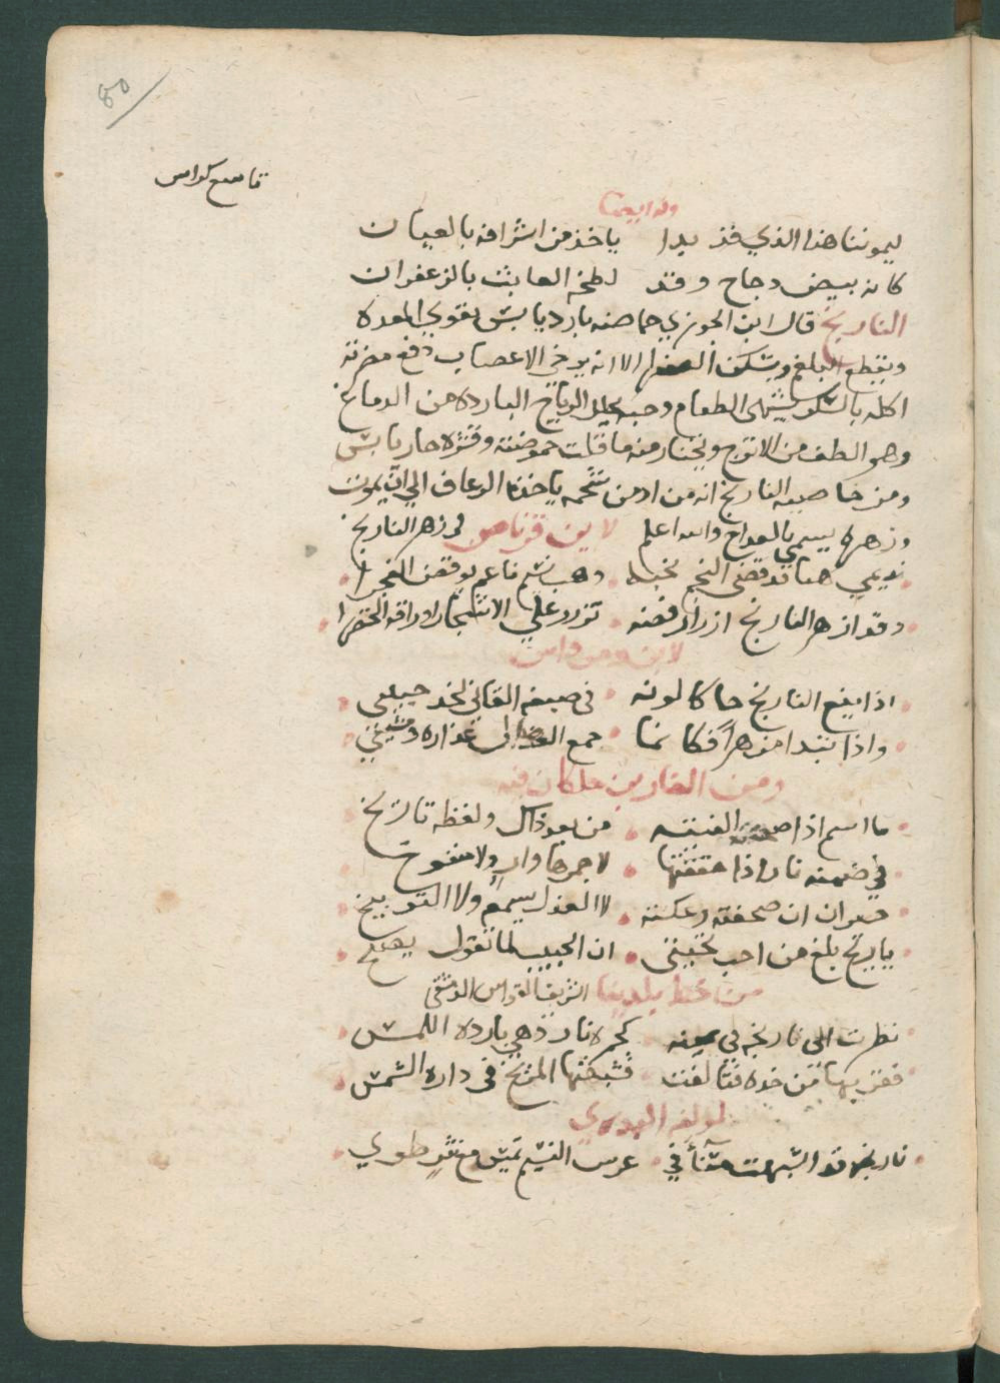 80
تاسع كراس
وله ايضا
ليموننا هذا الذي قد بدا ياخذ من اشراقه بالعيان
كانه بيض دجاج وقد لطخه العابث بالزعفران
النارنج قال ابن الجوزي حماضه بارد يابس يقوي المعده
ويقطع البلغم ويسكن الصفرا الا انه يرخي الاعصاب دفع مضرته
اكله بالسكر يشهي الطعام وحبه يحلل الرياح البارده من الدماغ
وهو الطف من الاترج ويختار منه ما قلت حموضته وقشره حار يابس
ومن خاصيه النارنج انه من ادمن شحمه ياخذه الرعاف الي ان يموت
وزهره يسمي بالقداح والله اعلم لابن قرناص في زهر النارنج
نديمي هنا قد قضى النجم نحبه وهب نسيم ناعم يوقظ الفجرا
وقد ازهر النارنج ازرار فضه تزرر علي الاشجار اوراقه الخضرا
لابن
اذا اينع النارنج حاكا لونه في صبغه القاني لخد حبيبي
واذا تبدا مزهرا فكانما جمع عذاره ومشيبي
ومن
ما اسم اذا الفيته من بعد ذاك ولفظه تاريخ
في ضمنه نار اذا حققتها لا جمرها وار ولا منفوخ
ان صحفته وعكسته لا العذل يسمع ولا التوبيخ
يا ريح بلغ من احب تحيتي ان الحبيب لما تقول يصيخ
الشريف القواس الدمشقي
نظرت الى نارنجه في يمينه كجمرة نار وهي بارده اللمس
فقربها من خده فتالفت فشبهتها المريخ في داره الشمس
لمولفه البدري
نارنجنا قد اشبهت في عرس النسيم تميس من طوي